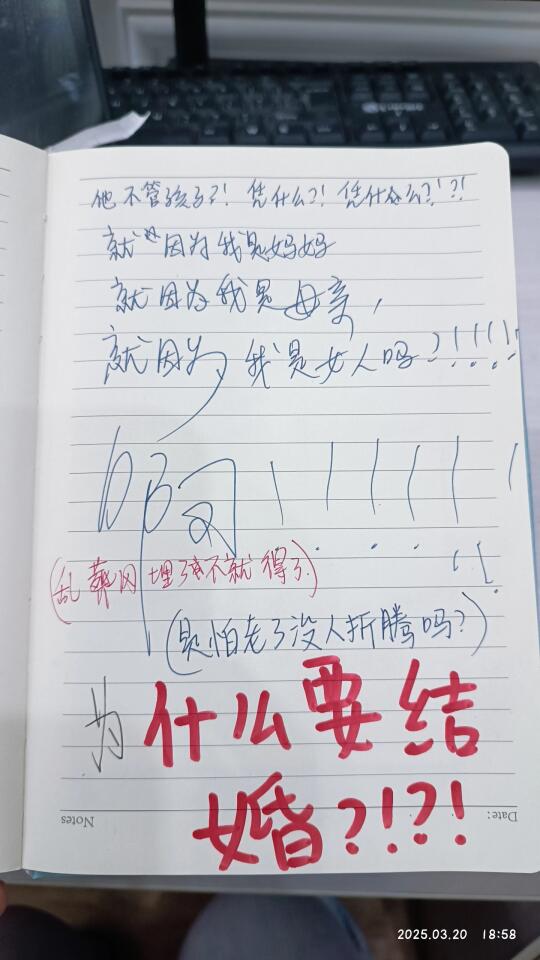 他不管孩子?! 凭什么?! 凭什么?! ?!
就因为我是妈妈
就因为我是母亲,
就因为,我是女人吗?!!!!!
啊!!!!!!
(乱葬冈埋了不就得了)
(是怕老了没人折腾吗?)
为什么要结
婚?!?!
Notes
Date:
2025.03.20 18:58